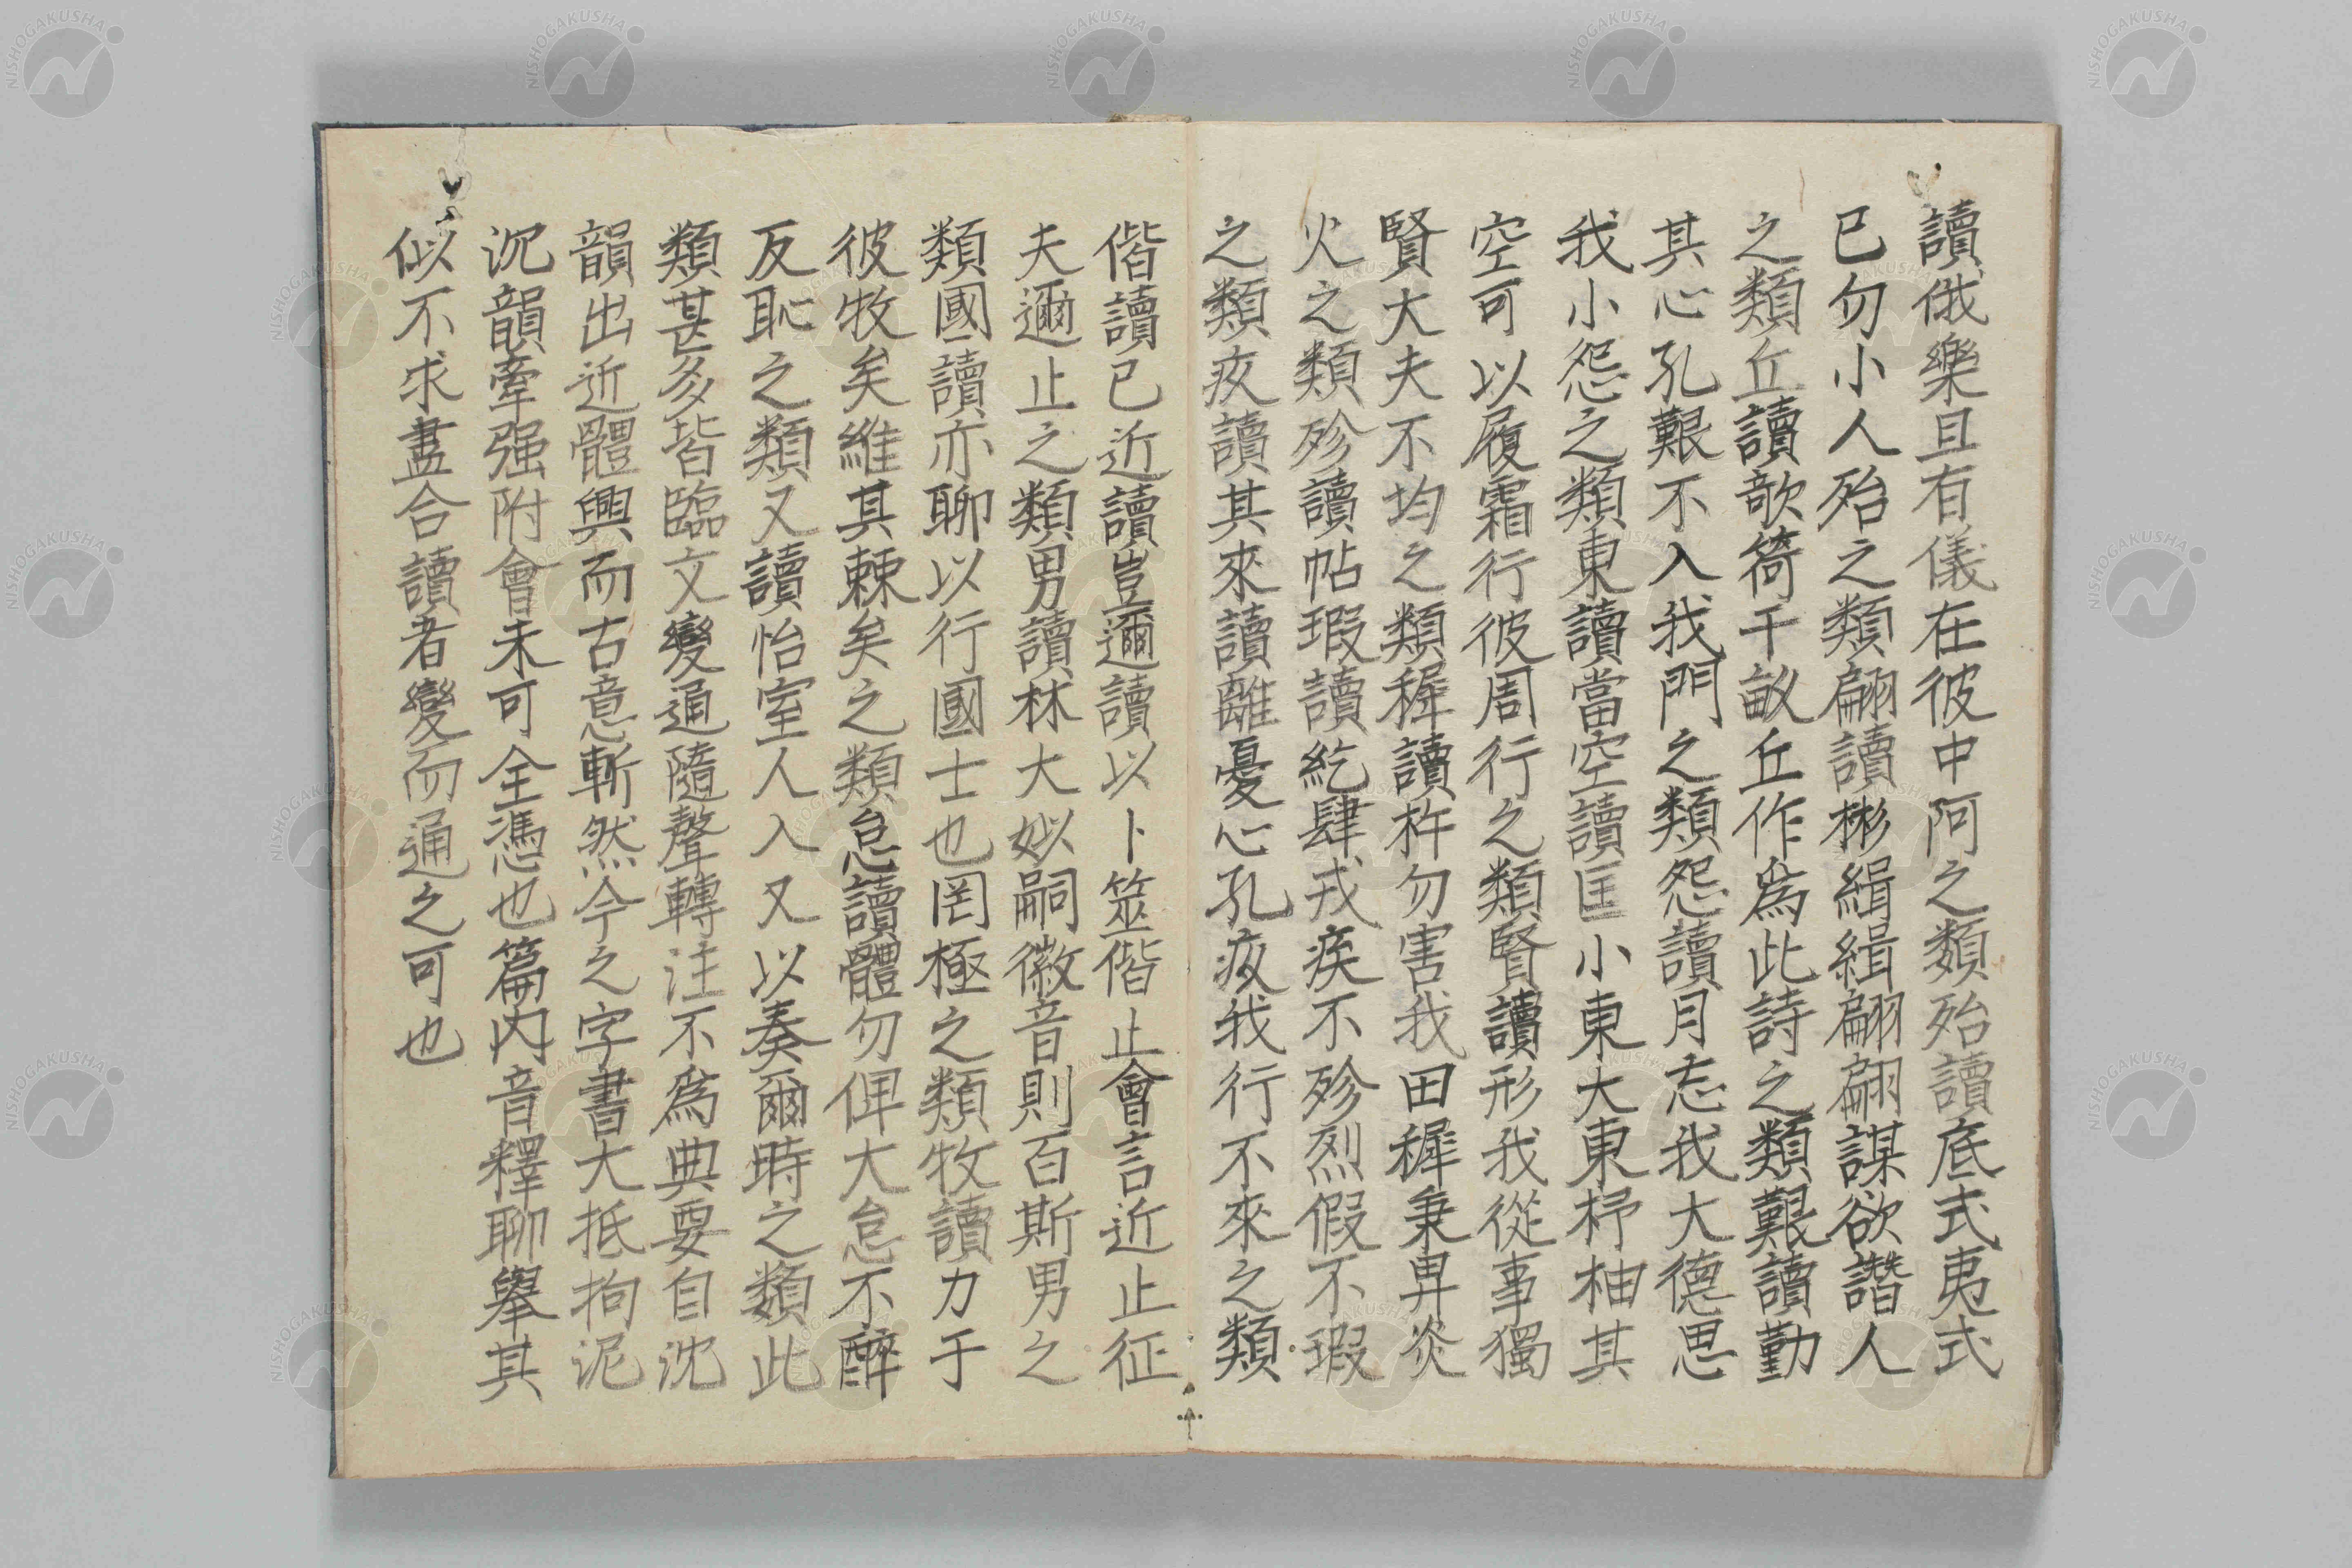 讀俄樂且有儀在彼中阿之類殆讀底式夷式
已勿小人殆之類翩讀彬緝緝翩翩謀欲譖人
之類丘讀欹猗于畝丘作爲此詩之類艱讀勤
其心孔艱不入我門之類怨讀月忘我大德思
我小怨之類東讀當空讀匡小東大東杼柚其
空可以履霜行彼周行之類賢讀形我從事獨
賢大夫不均之類穉讀杵勿害我田穉秉畀炎
火之類殄讀帖瑕讀紇肆戎疾不殄烈假不瑕
之類疚讀其來讀離憂心孔疚我行不來之類
偕讀已近讀豈邇讀以卜筮偕止會言近止征
夫邇止之類男讀林大姒嗣徽音則百斯男之
類國讀亦聊以行國士也罔極之類牧讀力于
彼牧矣維其棘矣之類怠讀體勿俾大怠不醉
反恥之類又讀怡室人入又以奏爾時之類此
類甚多皆臨文變通隨聲轉注不爲典要自沈
韻出近體興而古意斬然今之字書大抵拘泥
沉韻牽强附會未可全憑也篇內音釋聊舉其
似不求盡合讀者變而通之可也
NISHOGAKUSHA